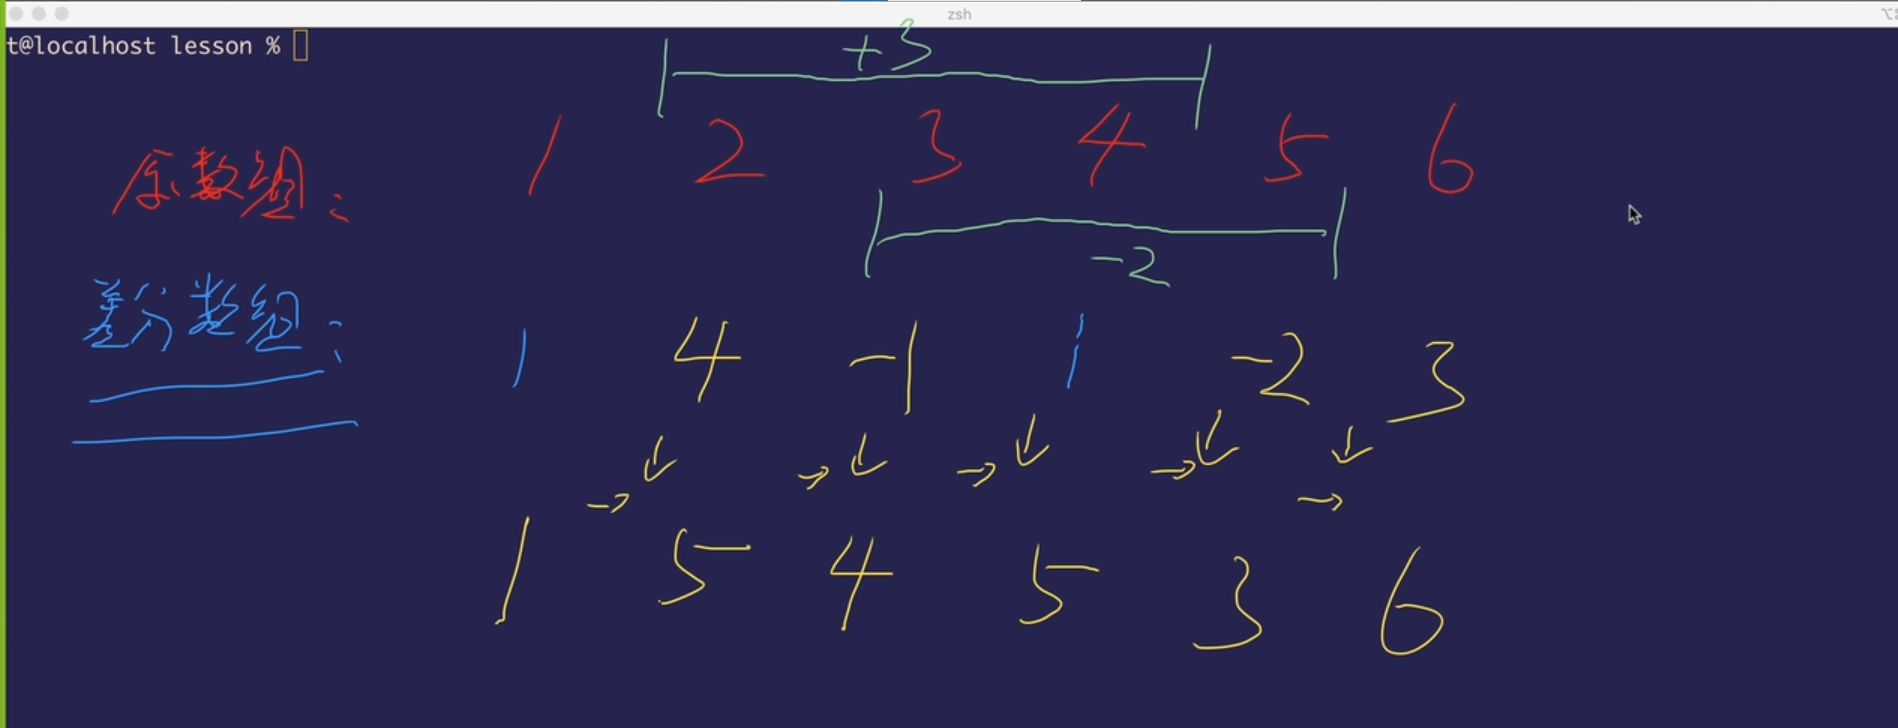 zsh
t@localhost lesson %
+3
原数组: 1 2 3 4 5 6
-2
差分数组: 1 4 -1 1 -2 3
1 5 4 5 3 6